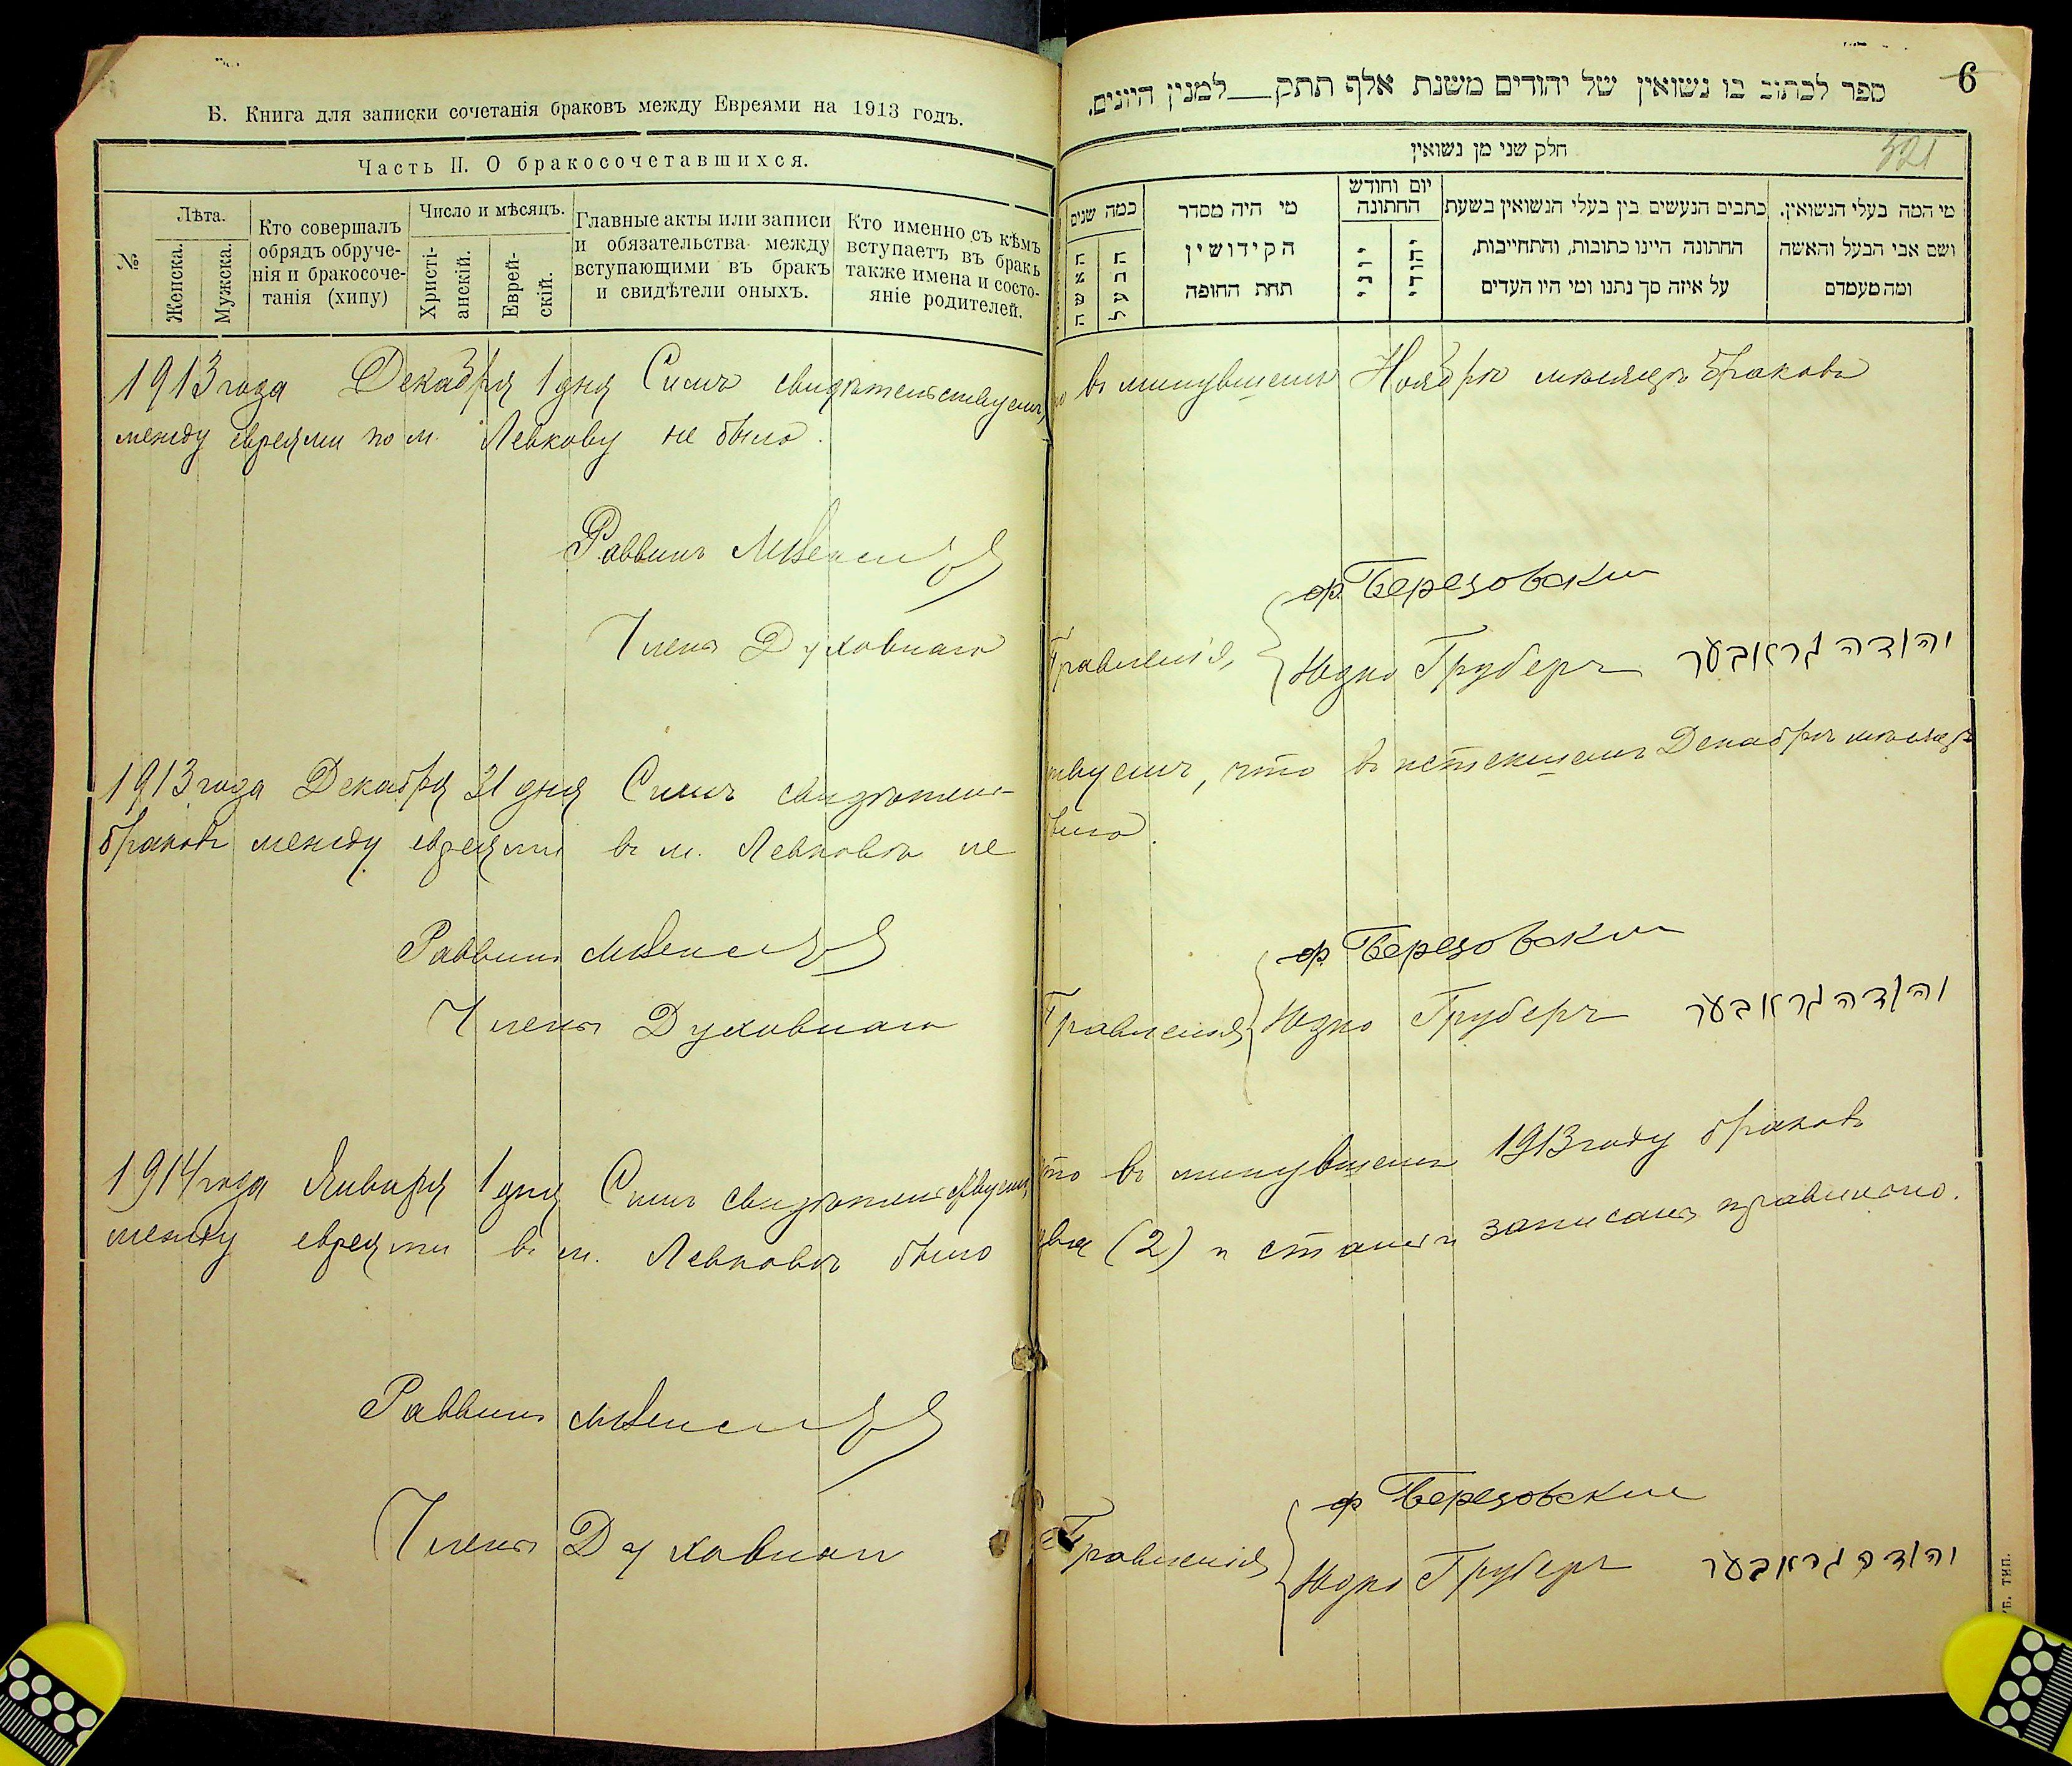 Б. Книга для записки сочетанія браковъ между Евреями на 1913 годъ.
Часть II. О бракосочетавшихся.
№
Лѣта.
Женска.
Мужска.
Кто совершалъ
обрядъ обруче-
нія и бракосоче-
танія (хипу)
Число и мѣсяцъ.
Христі-
анскій.
Еврей-
скій.
Главные акты или записи
и обязательства между
вступающими въ бракъ
и свидѣтели оныхъ.
Кто именно съ кѣмъ
вступаетъ въ бракъ
также имена и состо-
яніе родителей.
6
ספר לכתוב בו נשואין של יהודים משנת אלף תתק למנין היונים.
חלק שני מן נשואין
521
מי המה בעלי הנשואין.
ושם אבי הבעל והאשה
ומה מעמדם
כתבים הנעשים בין בעלי הנשואין בשעת
החתונה היינו כתובות, והתחייבות,
על איזה סך נתנו ומי היו העדים
יום וחודש
החתונה
יהודי
יוני
מי היה מסדר
הקידושין
תחת החופה
כמה שנים
הבעל
האשה
1913 года Декабря 1 дня Симъ свидѣтельствуемъ, въ минувшемъ Ноябрѣ мѣсяцѣ браковъ
между евреями по м. Левкову не было.
Раввинъ
Ф. Березовский
Члены Духовнаго Правленія, Юдко Груберъ יהודה גראבער
1913 года Декабря 31 дня Симъ свидѣтельствуемъ, что въ истекшемъ Декабрѣ мѣсяцѣ
браковъ между евреями въ м. Левковѣ не было.
Раввинъ
Ф. Березовский
Члены Духовнаго Правленія Юдко Груберъ יהודה גראבער
1914 года Января 1 дня Симъ свидѣтельствуемъ, что въ минувшемъ 1913 году браковъ
между евреями въ м. Левковѣ было два (2) и статьи записаны правильно.
Раввинъ
Ф Березовский
Члены Духовнаго Правленія Юдко Груберъ יהודה גראבער
ТИП.